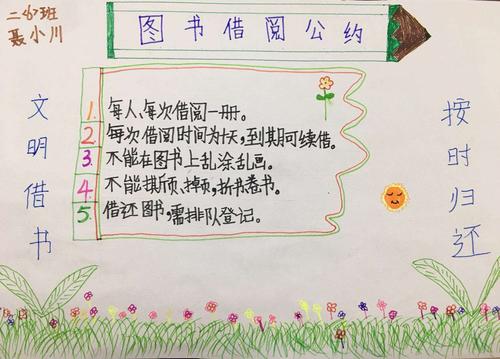 二(7)班
聂小川
图书借阅公约
文明借书
1. 每人、每次借阅一册。
2. 每次借阅时间为十天,到期可续借。
3. 不能在图书上乱涂乱画。
4. 不能撕页、掉页,折书卷书。
5. 借还图书,需排队登记。
按时归还